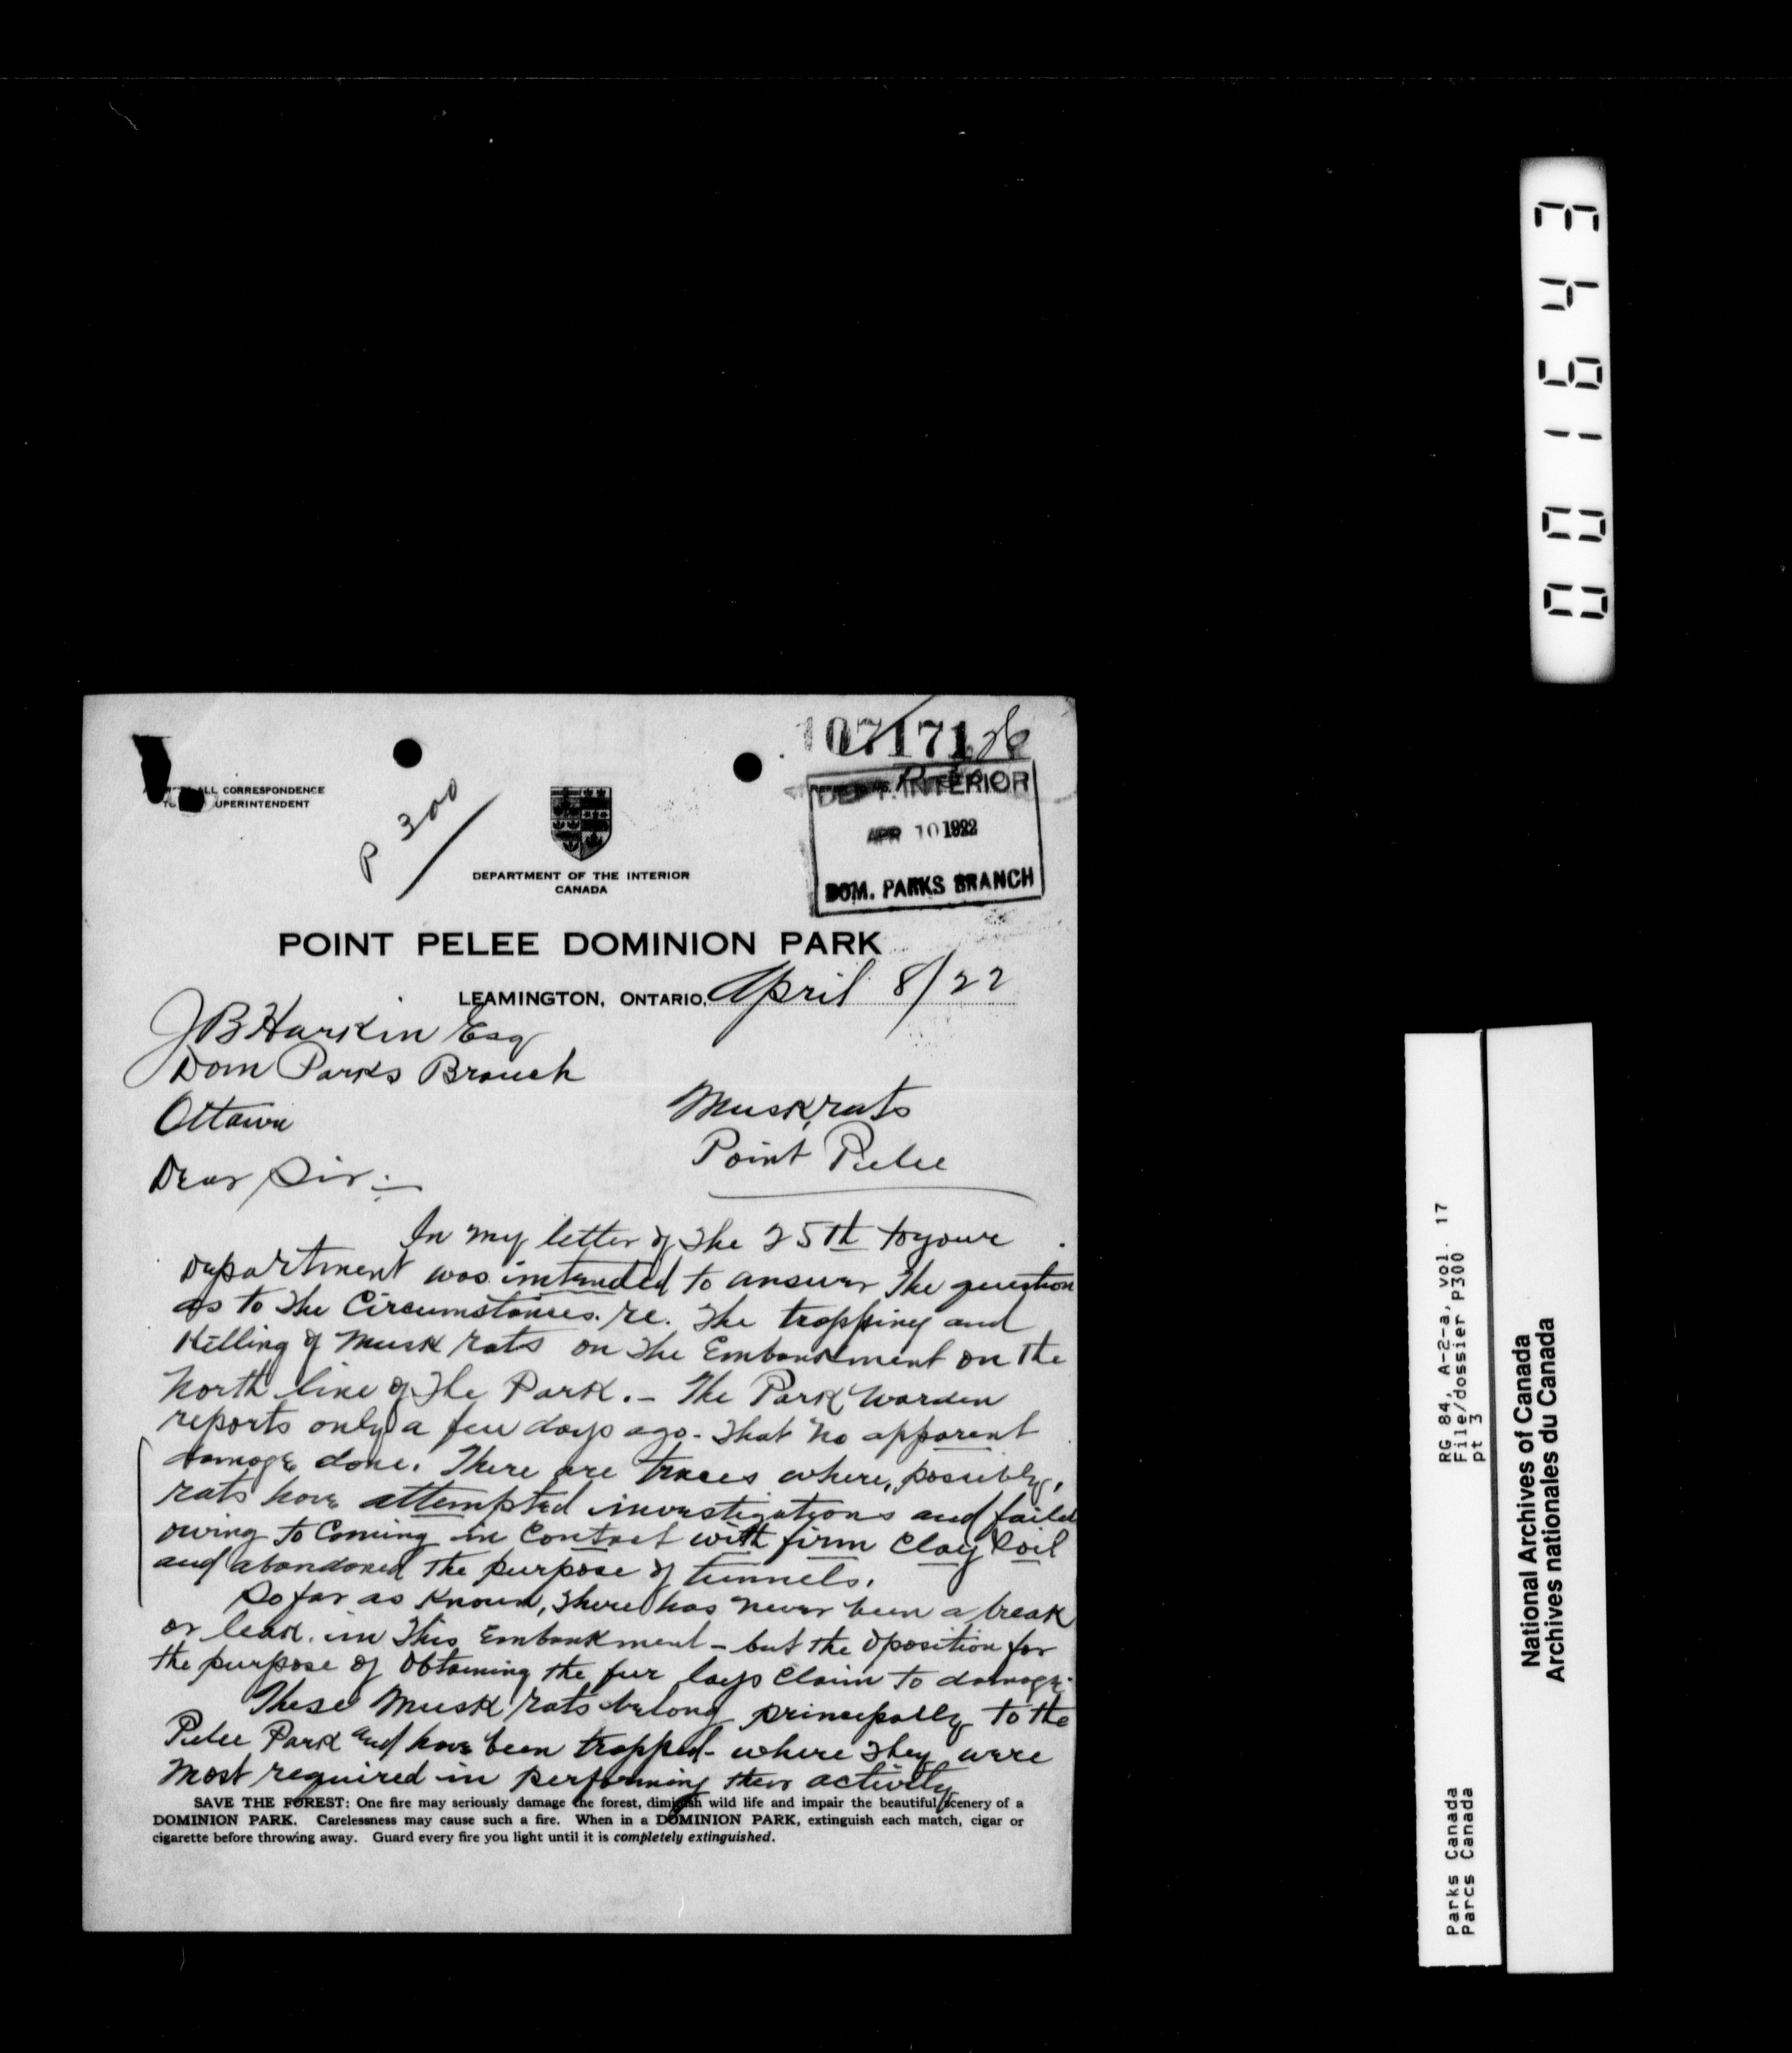 107171
ALL CORRESPONDENCE
UPERINTENDENT
P 300
DEPT. INTERIOR
APR 10 1922
DOM. PARKS BRANCH
DEPARTMENT OF THE INTERIOR
CANADA
POINT PELEE DOMINION PARK
LEAMINGTON, ONTARIO, April 8/22
J B Harkin Esq
Dom Parks Branch
Ottawa
Musk rats
Point Pelee
Dear Sir :-
In my letter of the 25th to your
department was intended to answer the question
as to the Circumstances. re. the trapping and
Killing of Musk rats on the Embankment on the
North line of the Park. - The Park Warden
reports only a few days ago - that no apparent
damage done. There are traces where, possibly,
rats have attempted investigations and failed
owing to Coming in Contact with firm Clay Soil
and abandoned the purpose of tunnels.
So far as Known, there has never been a break
or leak. in this Embankment - but the oposition for
the purpose of Obtaining the fur lays Claim to damage.
These Musk rats belong principally to the
Pelee Park and have been trapped - where they were
Most required in performing their activity
SAVE THE FOREST: One fire may seriously damage the forest, diminish wild life and impair the beautiful scenery of a
DOMINION PARK. Carelessness may cause such a fire. When in a DOMINION PARK, extinguish each match, cigar or
cigarette before throwing away. Guard every fire you light until it is completely extinguished.
001643
RG 84, A-2-a, vol. 17
File/dossier P300
pt 3
Parks Canada
Parcs Canada
National Archives of Canada
Archives nationales du Canada